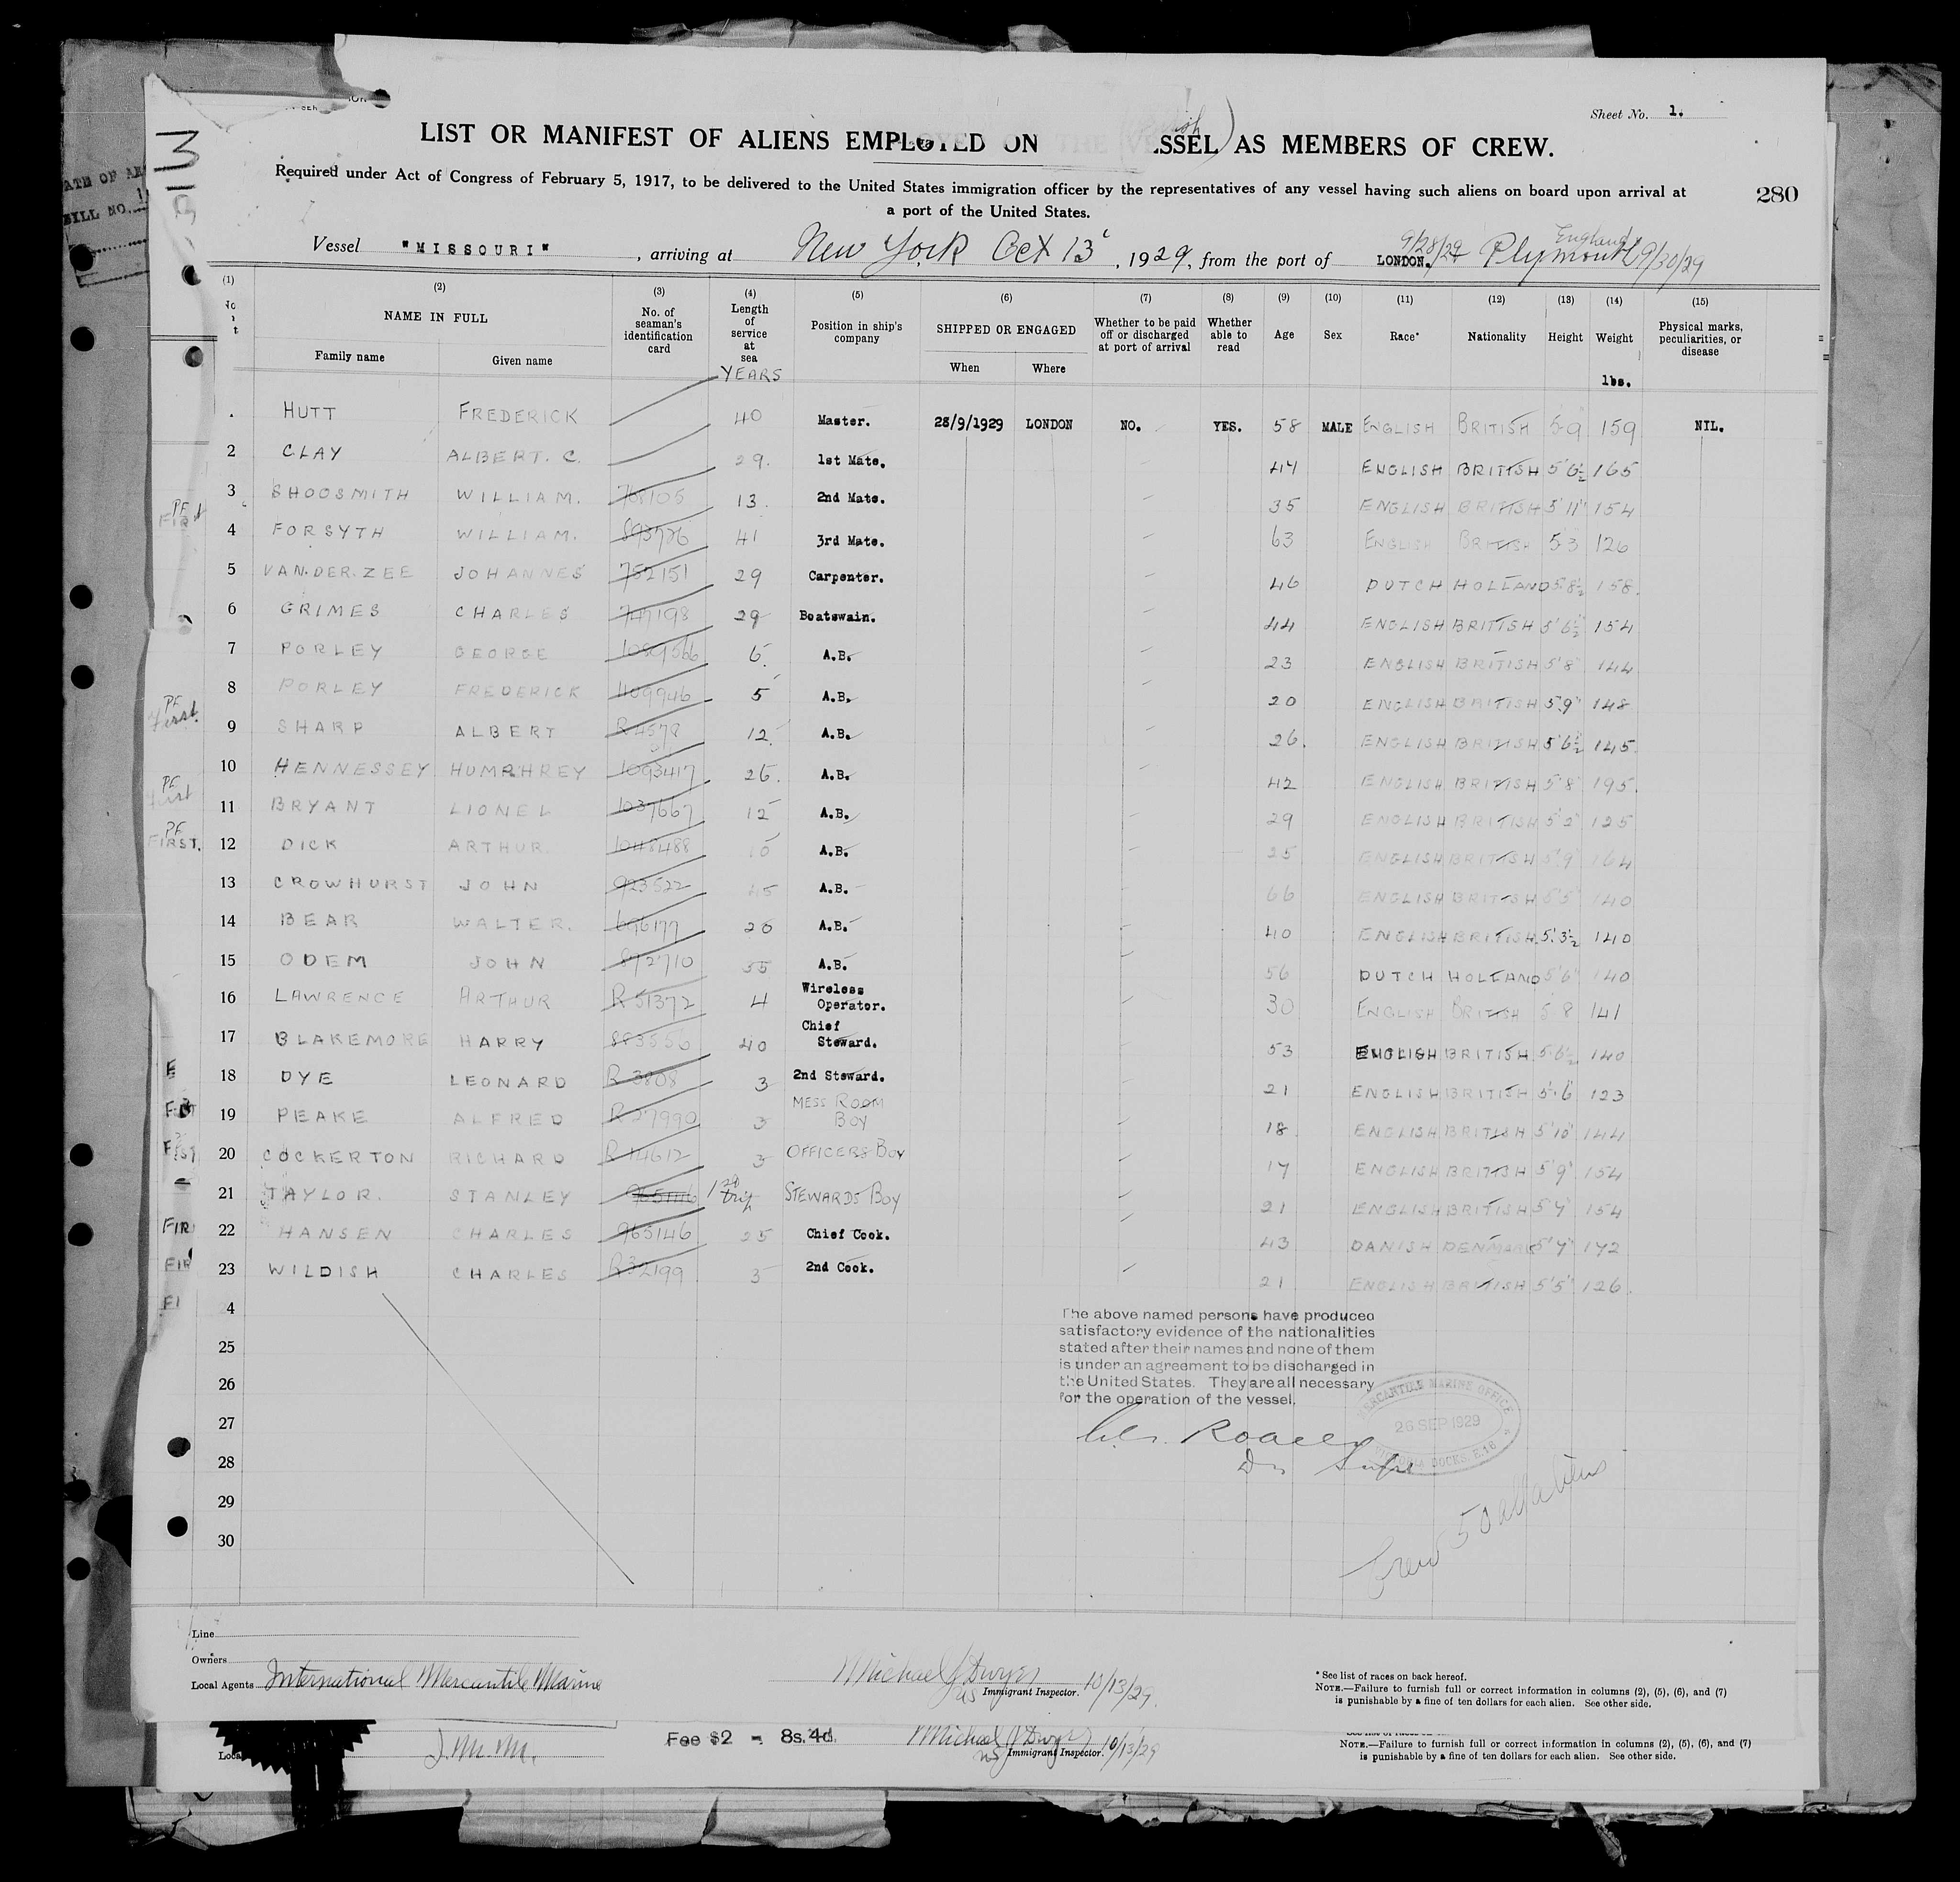 Sheet No. 1.
LIST OR MANIFEST OF ALIENS EMPLOYED ON THE VESSEL AS MEMBERS OF CREW.
Required under Act of Congress of February 5, 1917, to be delivered to the United States immigration officer by the representatives of any vessel having such aliens on board upon arrival at
a port of the United States.
280
Vessel "MISSOURI", arriving at New York Oct 13, 1929, from the port of LONDON. 9/28/29 Plymouth England 9/30/29
(1) (2) (3) (4) (5) (6) (7) (8) (9) (10) (11) (12) (13) (14) (15)
NAME IN FULL
Family name Given name
No. of seaman's identification card
Length of service at sea
YEARS
Position in ship's company
SHIPPED OR ENGAGED
When Where
Whether to be paid off or discharged at port of arrival
Whether able to read
Age Sex Race* Nationality Height Weight
lbs.
Physical marks, peculiarities, or disease
HUTT FREDERICK 40 Master. 28/9/1929 LONDON NO. YES. 58 MALE ENGLISH BRITISH 5-9 159 NIL.
2 CLAY ALBERT. C. 29. 1st Mate. 44 ENGLISH BRITISH 5'6½ 165
3 SHOOSMITH WILLIAM. 768105 13. 2nd Mate. 35 ENGLISH BRITISH 5'11" 154
4 FORSYTH WILLIAM. 893726 41 3rd Mate. 63 ENGLISH BRITISH 5-3 126
5 VAN.DER.ZEE JOHANNES 752151 29 Carpenter. 46 DUTCH HOLLAND 5'8½ 158.
6 GRIMES CHARLES 747198 29 Boatswain. 44 ENGLISH BRITISH 5'6½ 154
7 PORLEY GEORGE 1089566 6. A.B. 23 ENGLISH BRITISH 5'8" 144
8 PORLEY FREDERICK 1109946 5 A.B. 20 ENGLISH BRITISH 5'9" 148
9 SHARP ALBERT R4578 12. A.B. 26. ENGLISH BRITISH 5'6½ 145
10 HENNESSEY HUMPHREY 1093417 26. A.B. 42 ENGLISH BRITISH 5'8" 195.
11 BRYANT LIONEL 1037667 12 A.B. 29 ENGLISH BRITISH 5'2" 125
12 DICK ARTHUR. 1048488 10 A.B. 25 ENGLISH BRITISH 5'9" 164
13 CROWHURST JOHN 923522 45 A.B. 66 ENGLISH BRITISH 5'5" 140
14 BEAR WALTER. 696177 26 A.B. 40 ENGLISH BRITISH 5'3½ 140
15 ODEM JOHN 872710 35 A.B. 56 DUTCH HOLLAND 5'6" 140
16 LAWRENCE ARTHUR R51372 4 Wireless Operator. 30 ENGLISH BRITISH 5 8 141
17 BLAKEMORE HARRY 883556 40 Chief Steward. 53 ENGLISH BRITISH 5-6½ 140
18 DYE LEONARD R3808 3 2nd Steward. 21 ENGLISH BRITISH 5'6 123
19 PEAKE ALFRED R27990 3 MESS ROOM BOY 18 ENGLISH BRITISH 5'10" 144
20 COCKERTON RICHARD R14612 3 OFFICERS BOY 17 ENGLISH BRITISH 5'9" 154
21 TAYLOR. STANLEY 1 trip STEWARDS BOY 21 ENGLISH BRITISH 5'7" 154
22 HANSEN CHARLES 965146 25 Chief Cook. 43 DANISH DENMARK 5'7" 172
23 WILDISH CHARLES R32199 3 2nd Cook. 21 ENGLISH BRITISH 5'5" 126.
4
25
26
27
28
29
30
The above named persons have produced
satisfactory evidence of the nationalities
stated after their names and none of them
is under an agreement to be discharged in
the United States. They are all necessary
for the operation of the vessel.
MERCANTILE MARINE OFFICE
26 SEP 1929
VICTORIA DOCKS. E.16
Crew 50 all aliens
Line
Owners
Local Agents International Mercantile Marine
Michael J Dwyer
US Immigrant Inspector. 10/13/29.
* See list of races on back hereof.
NOTE.—Failure to furnish full or correct information in columns (2), (5), (6), and (7)
is punishable by a fine of ten dollars for each alien. See other side.
I. M. M.
Fee $2 - 8s. 4d.
Michael J Dwyer
US Immigrant Inspector. 10/13/29
NOTE.—Failure to furnish full or correct information in columns (2), (5), (6), and (7)
is punishable by a fine of ten dollars for each alien. See other side.